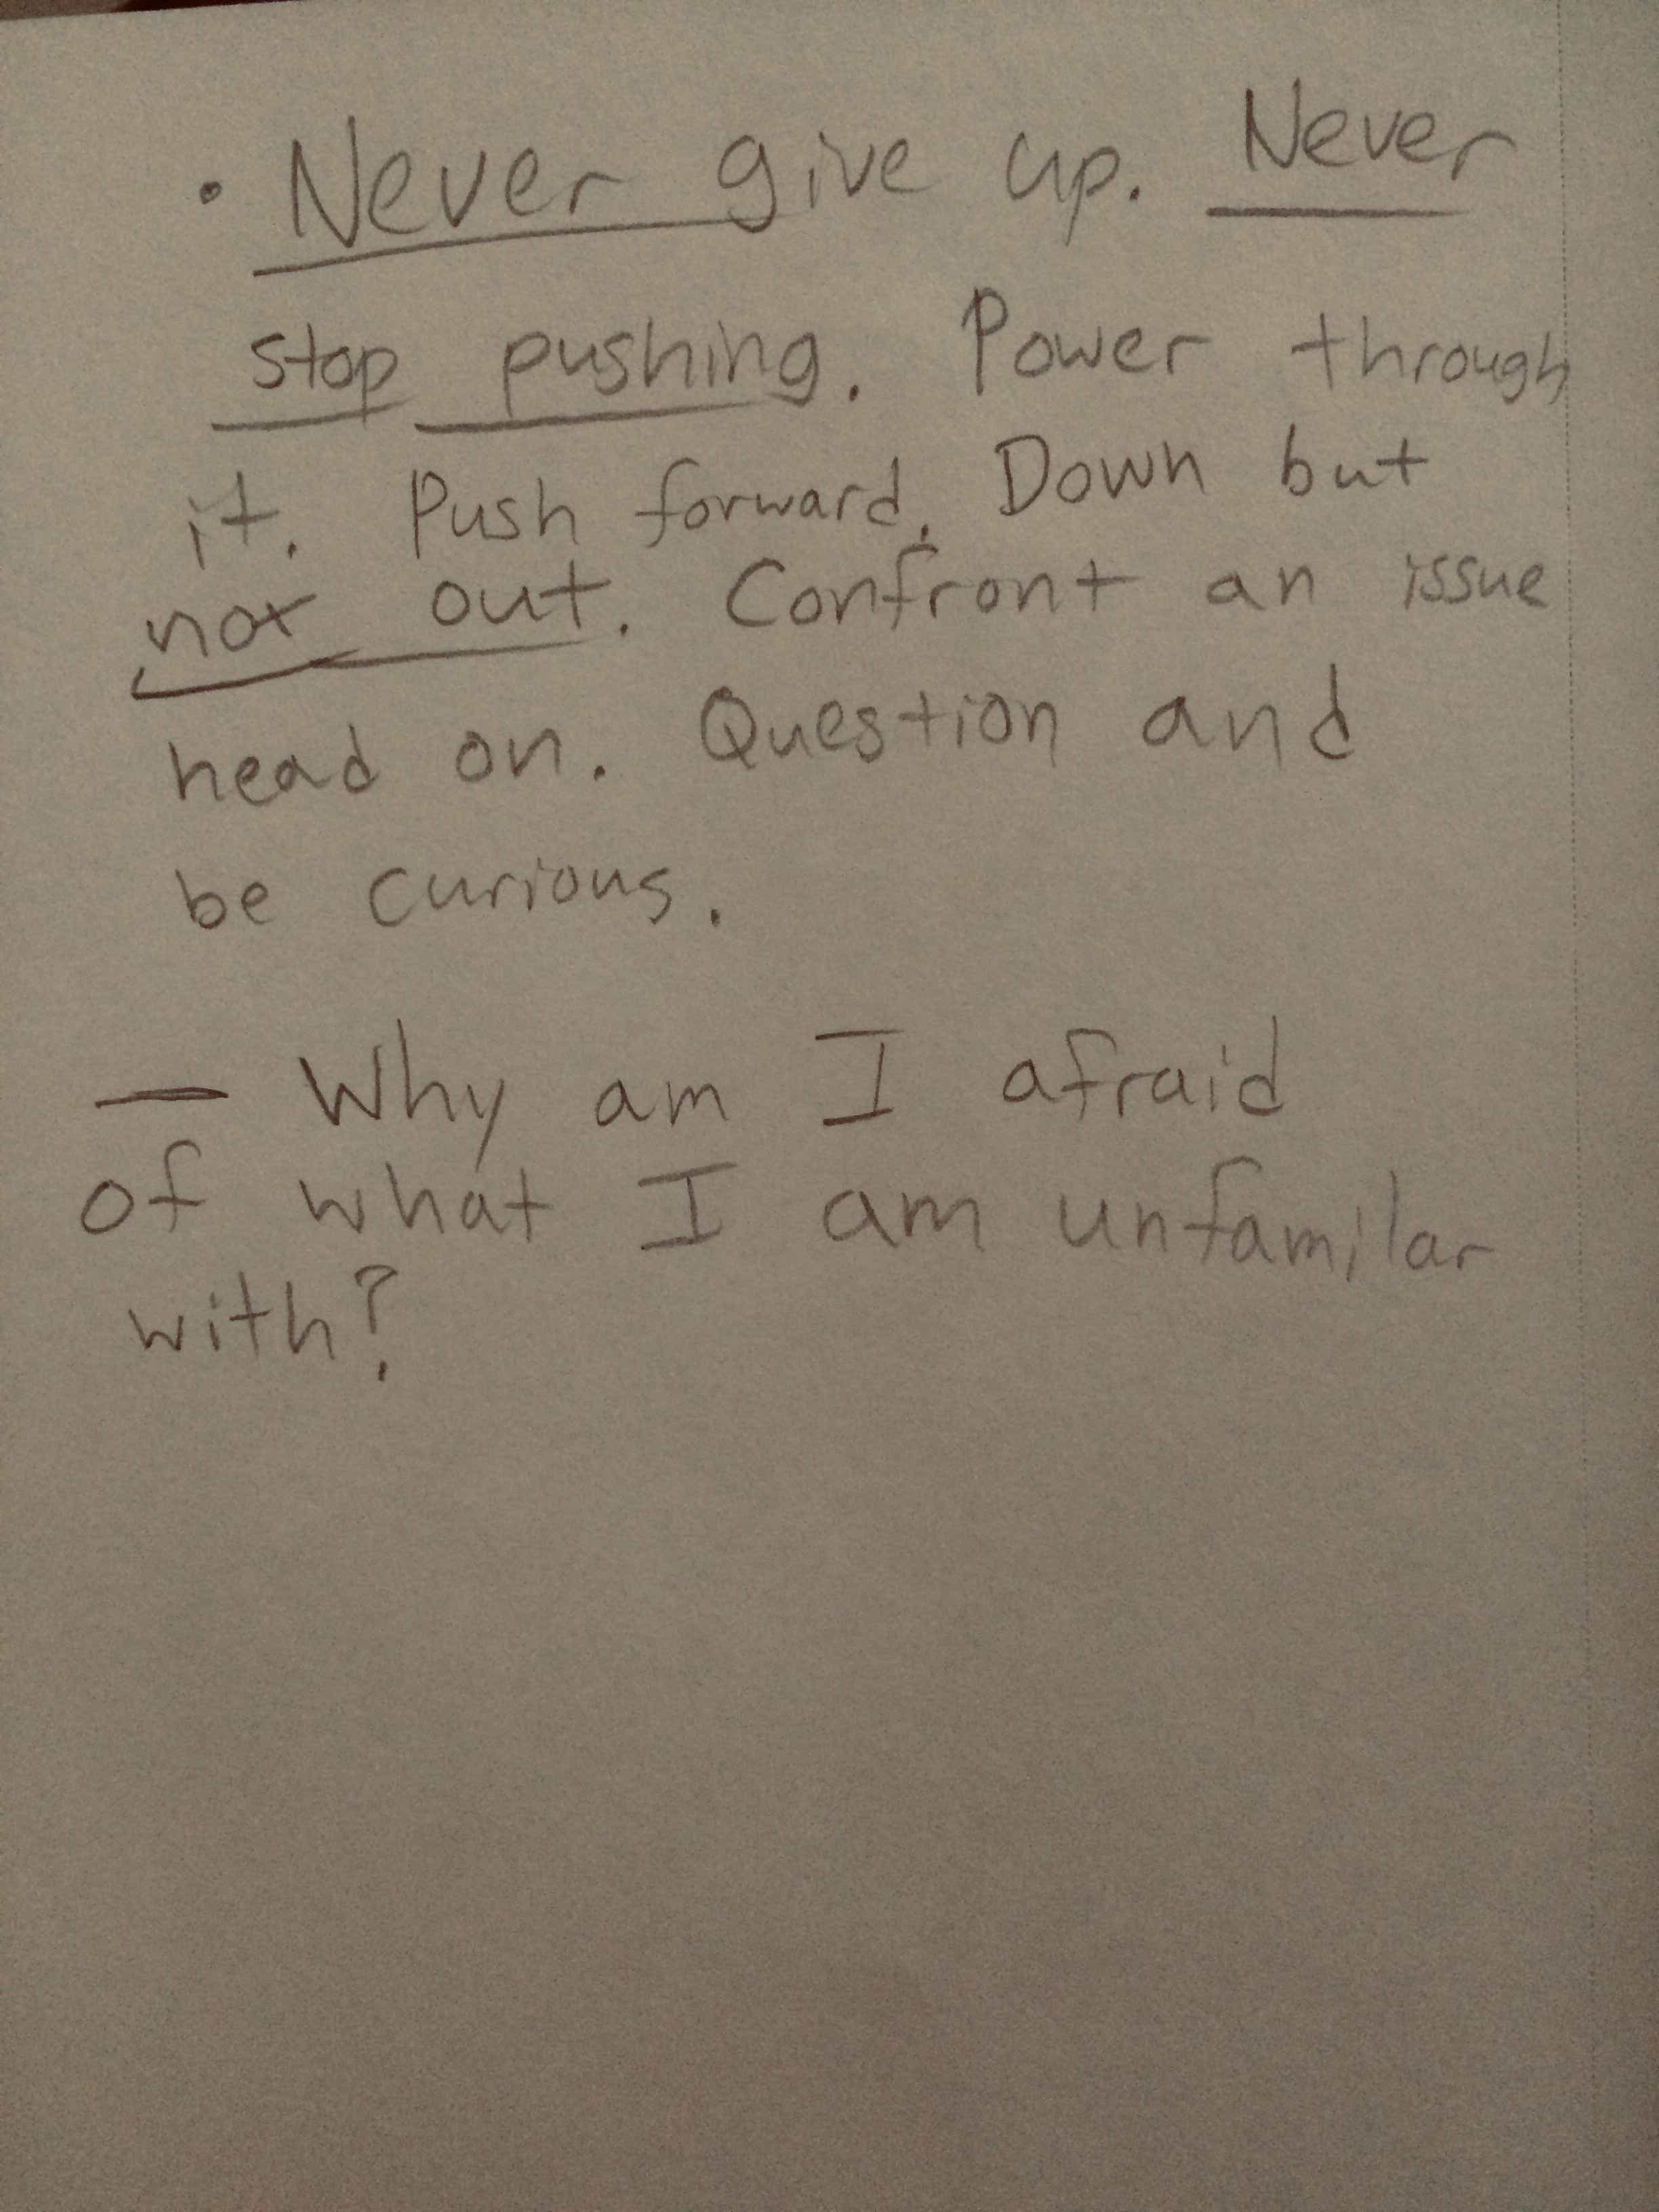 • Never give up. Never
stop pushing. Power through
it. Push forward. Down but
not out. Confront an issue
head on. Question and
be curious.
— Why am I afraid
of what I am unfamilar
with?